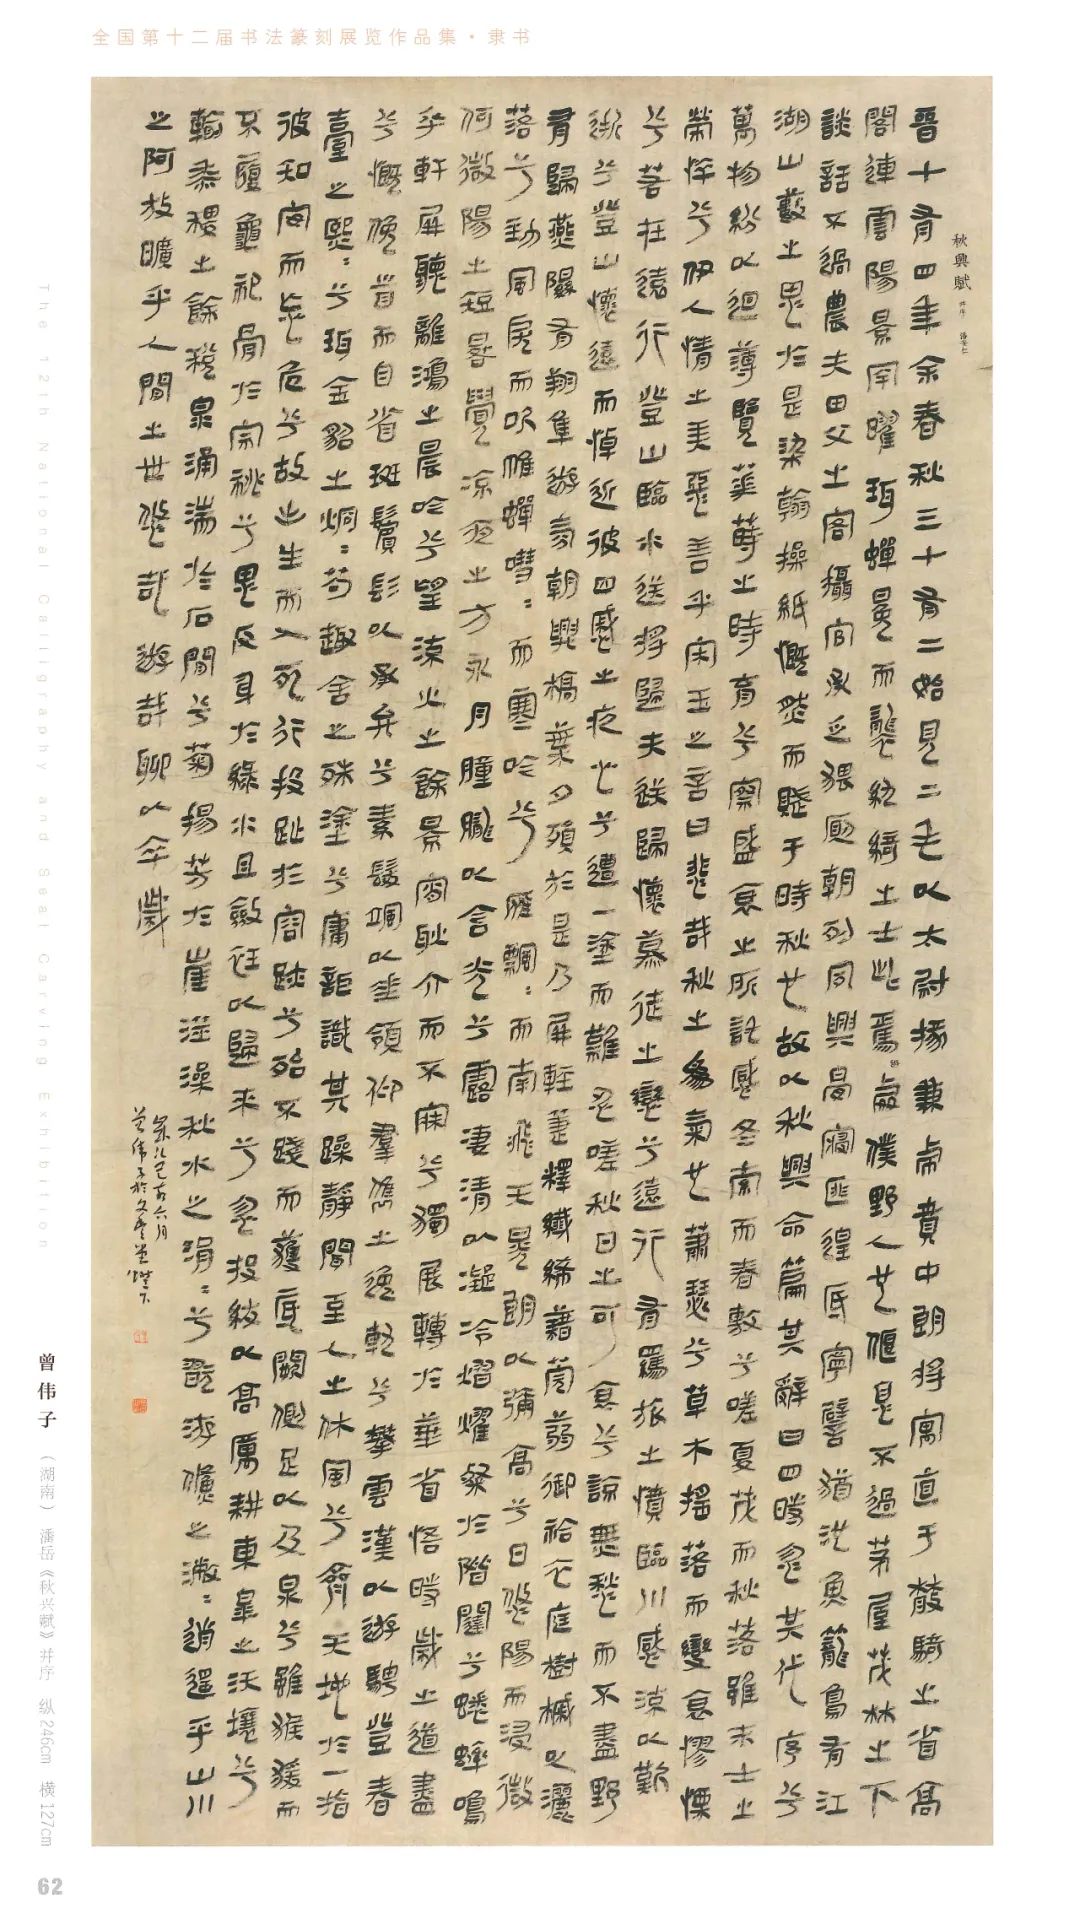 全国第十二届书法篆刻展览作品集·隶书
秋興賦 并序 潘安仁
晉十有四年余春秋三十有二始見二毛以太尉掾兼虎賁中郎將寓直于散騎之省高
閣連雲陽景罕曜珥蟬冕而襲紈綺之士此焉游處僕野人也偃息不過茅屋茂林之下
談話不過農夫田父之客攝官承乏猥廁朝列夙興晏寢匪遑底寧譬猶池魚籠鳥有江
湖山藪之思於是染翰操紙慨然而賦于時秋也故以秋興命篇其辭曰四時忽其代序兮
萬物紛以迴薄覽華蒔之時育兮察盛衰之所託感冬索而春敷兮嗟夏茂而秋落雖末士之
榮悴兮伊人情之美惡善乎宋玉之言曰悲哉秋之為氣也蕭瑟兮草木搖落而變衰憀慄
兮若在遠行登山臨水送將歸夫送歸懷慕徒之戀兮遠行有羈旅之憤臨川感流以歎
逝兮登山懷遠而悼近彼四慼之疚心兮遭一塗而難忍嗟秋日之可哀兮諒無愁而不盡野
有歸燕隰有翔隼游氛朝興槁葉夕殞於是乃屏輕箑釋纖絺藉莞蒻御袷衣庭樹槭以灑
落兮勁風戾而吹帷蟬嘒〻而寒吟兮雁飄〻而南飛天晃朗以彌高兮日悠陽而浸微
何微陽之短晷覺涼夜之方永月朣朧以含光兮露淒清以凝冷熠燿粲於階闥兮蟋蟀鳴
乎軒屏聽離鴻之晨吟兮望流火之餘景宵耿介而不寐兮獨展轉於華省悟時歲之遒盡
兮慨俛首而自省斑鬢髟以承弁兮素髮颯以垂領仰羣儁之逸軌兮攀雲漢以游騁登春
臺之熙〻兮珥金貂之炯〻苟趣舍之殊塗兮庸詎識其躁靜聞至人之休風兮齊天地於一指
彼知安而忘危兮故出生而入死行投趾於容跡兮殆不踐而獲底闕側足以及泉兮雖猴猨而
不履龜祀骨於宗祧兮思反身於綠水且斂衽以歸來兮忽投紱以高厲耕東皋之沃壤兮
輸黍稷之餘稅泉涌湍於石間兮菊揚芳於崖澨澡秋水之涓〻兮玩游鯈之潎〻逍遙乎山川
之阿放曠乎人間之世悠哉游哉聊以卒歲
歲次己亥六月
曾偉子於文堂燈下
The 12th National Calligraphy and Seal Carving Exhibition
曾伟子（湖南）潘岳《秋兴赋》并序 纵246cm 横127cm
62